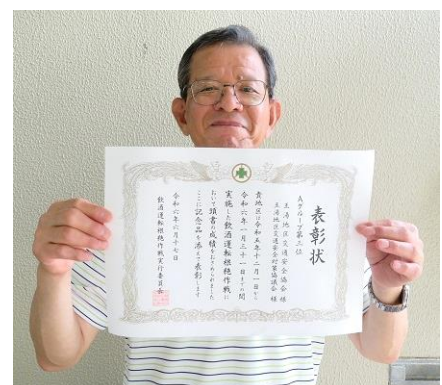 表彰状
Aグループ第三位
玉湯地区交通安全協会 様
玉湯地区交通安全対策協議会 様
貴地区は令和五年十二月一日から
令和六年一月三十一日までの間
実施した飲酒運転根絶作戦に
おいて頭書の成績をおさめられました
ここに記念品を添えて表彰します
令和六年六月十七日
飲酒運転根絶作戦実行委員長